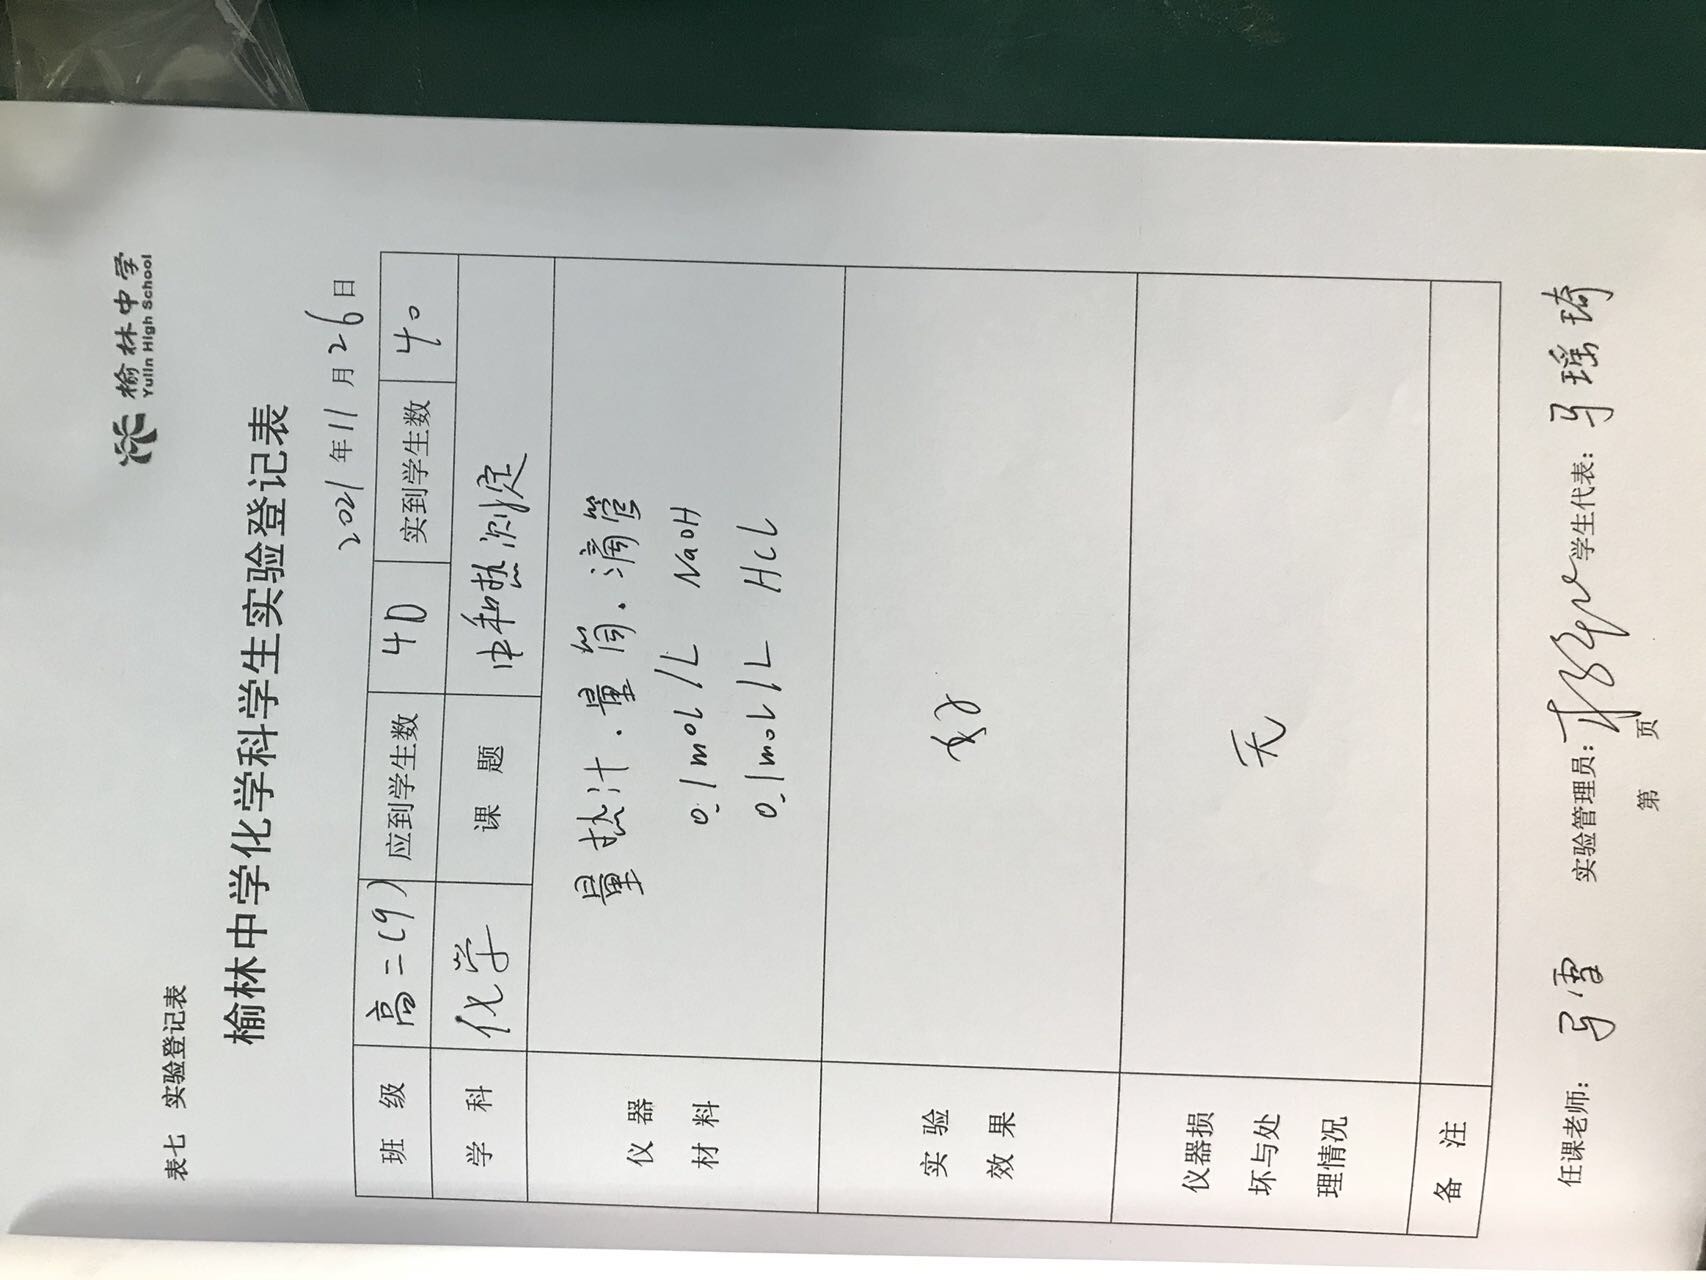 榆林中学
Yulin High School
表七 实验登记表
榆林中学化学科学生实验登记表
2021年11月26日
班级 高二(9) 应到学生数 40 实到学生数 40
学科 化学 课题 中和热测定
仪器材料
量热计.量筒.滴管
0.1mol/L NaOH
0.1mol/L HCl
实验效果 好
仪器损坏与处理情况 无
备注
任课老师: 马雪 实验管理员: 学生代表: 马瑶琦
第 页